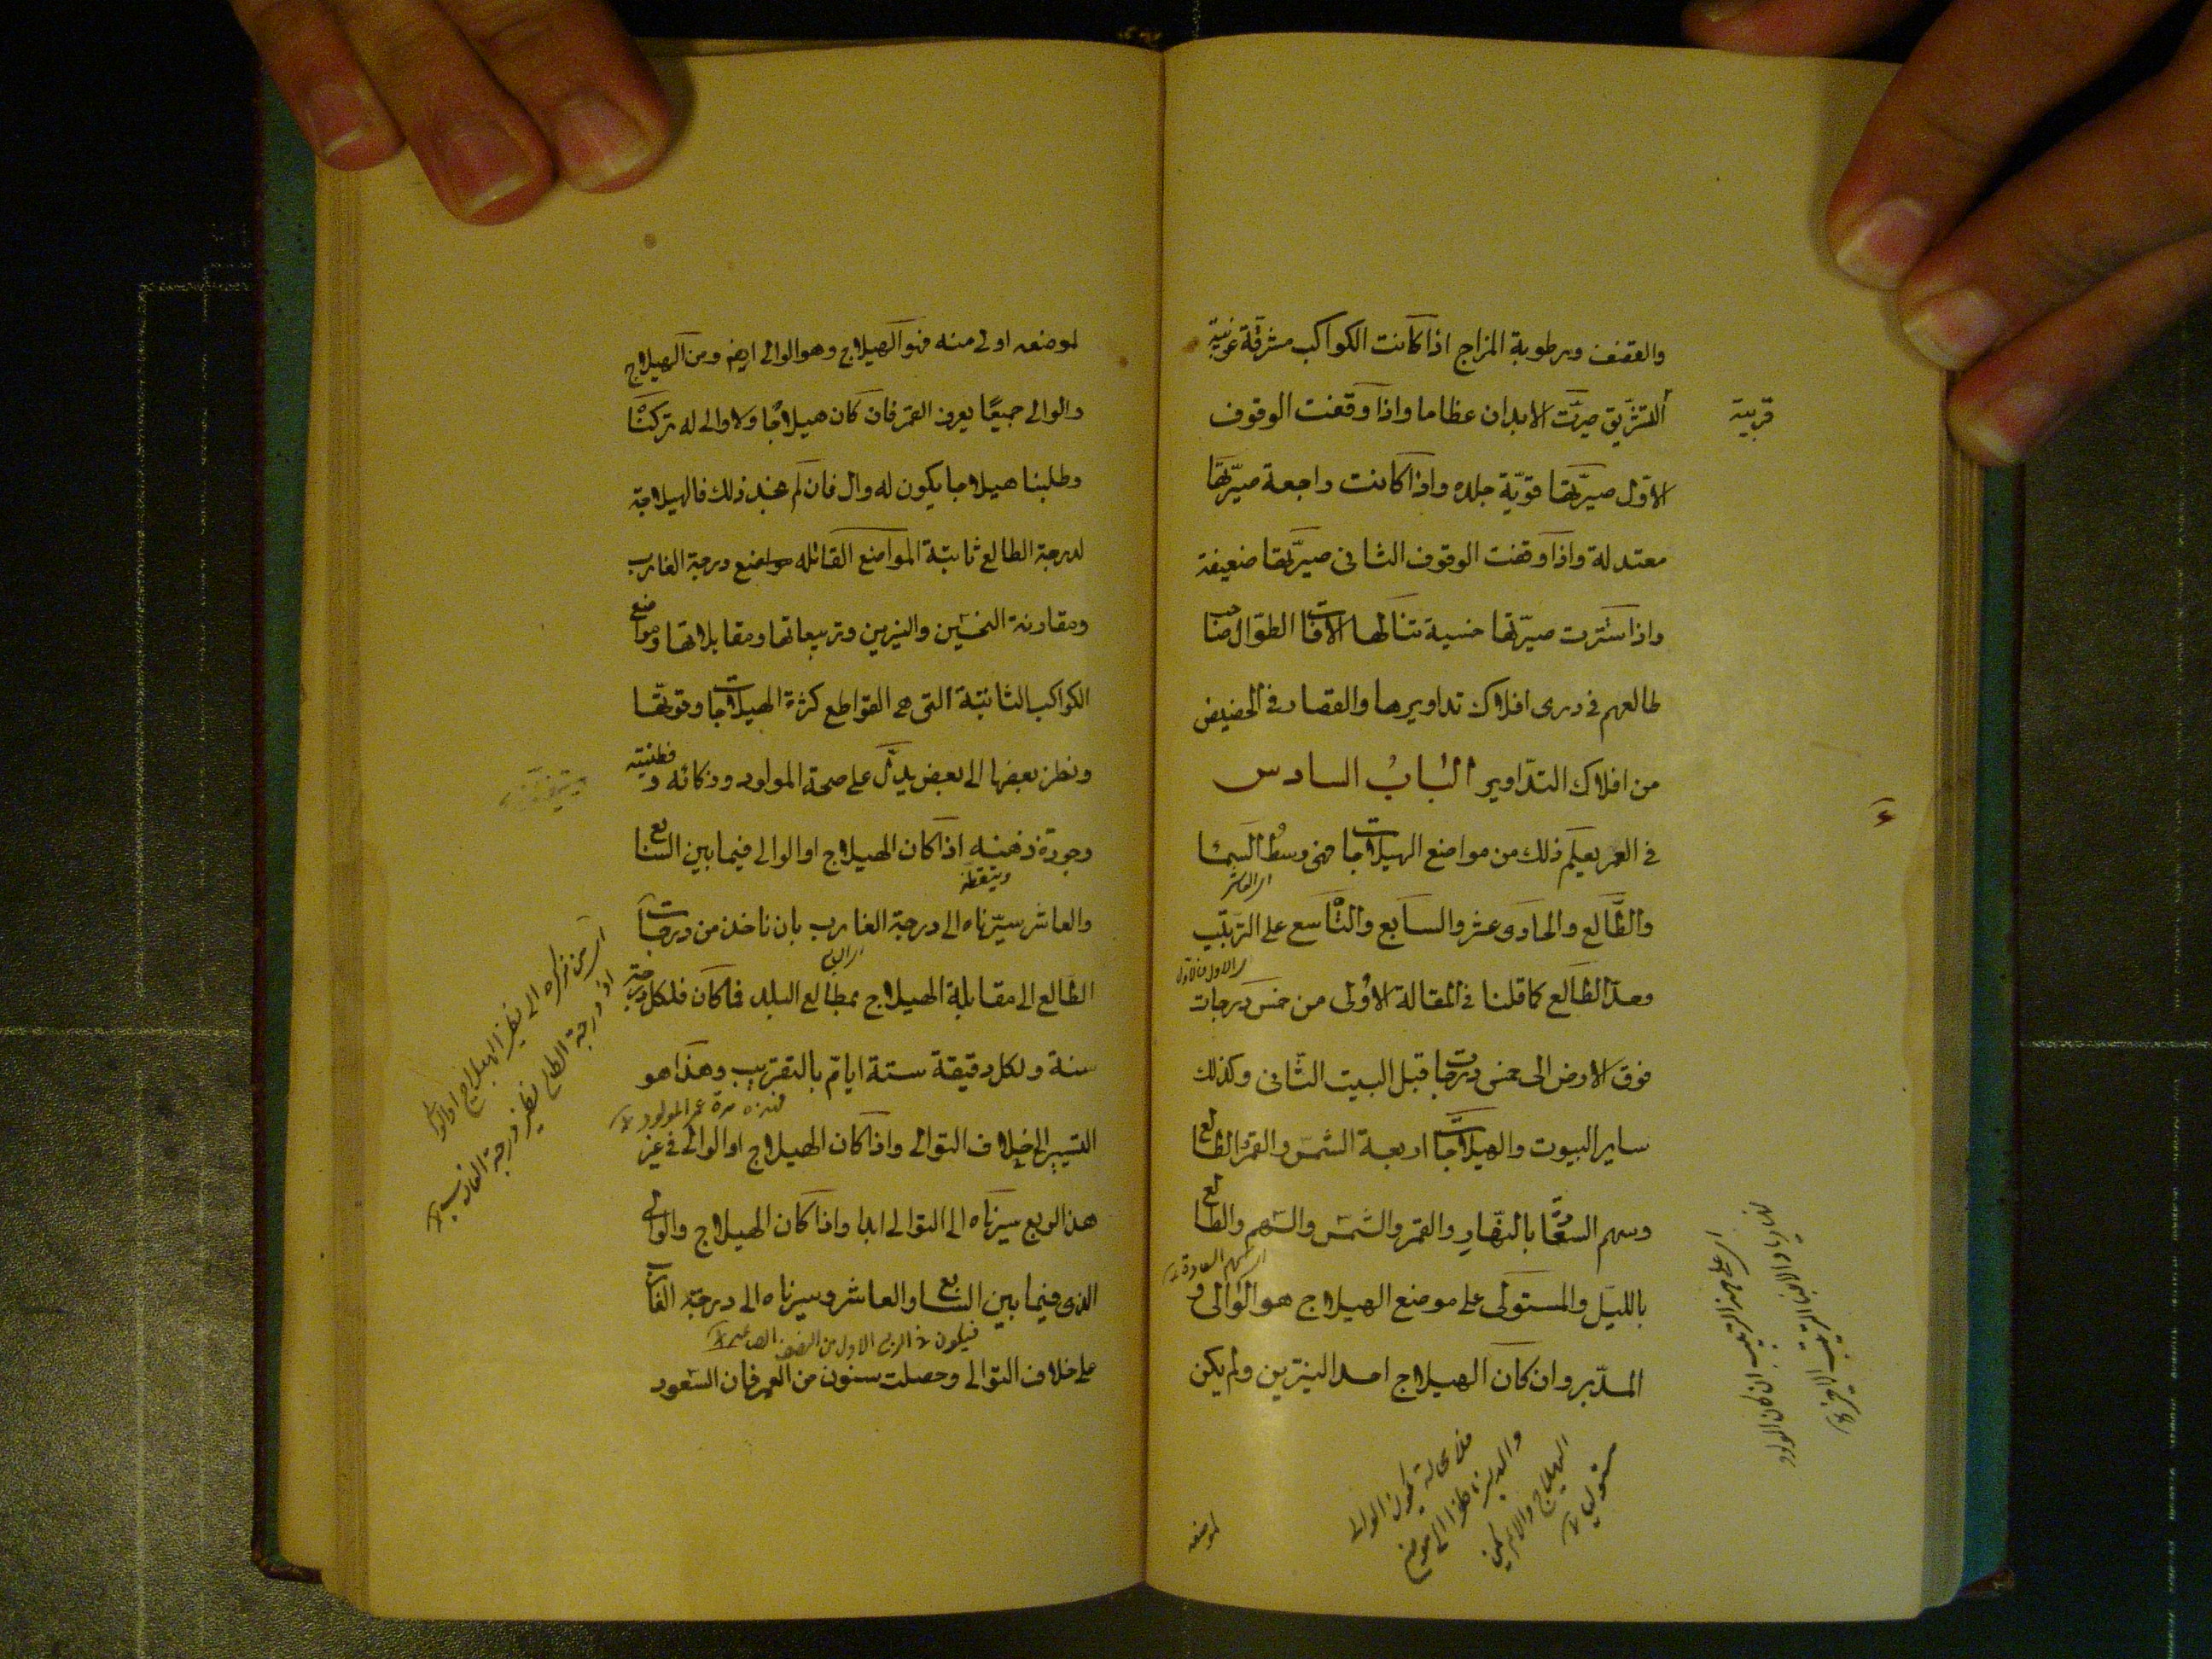 والقضف ورطوبة المزاج اذا كانت الكواكب مشرقة عرضية
قريبة
التشريق صيرت الابدان عظاما واذا وقفت الوقوف
الاول صيرتها قوية جلده واذا كانت راجعة صيرتها
معتدلة واذا وقفت الوقوف الثانى صيرتها ضعيفة
واذا استترت صيرتها خسيسة تنالها الافات الطوال صاحب
طالعهم فى ذرى افلاك تداويرها والقصار فى الحضيض
من افلاك التداوير الباب السادس
فى العمر يعلم ذلك من مواضع الهيلاجات فهى وسط السماء
اى العاشر
والطالع والحادى عشر والسابع والتاسع على الترتيب
وهذا الطالع كما قلنا فى المقالة الاولى من خمس درجات
فوق الارض الى خمس درجات قبل البيت الثانى وكذلك
ساير البيوت والهيلاجات اربعة الشمس والقمر والطالع
وسهم السعادة بالنهار والقمر والشمس والسهم والطالع
اى سهم السعادة
بالليل والمستولى على موضع الهيلاج هو الوالى و
المدبر وان كان الهيلاج احد النيرين ولم يكن
والمدبر ناظرا الى موضع
لموضعه
لموضعه اولى منه فهو الهيلاج وهو الوالى ايضا ومن الهيلاج
والوالى جميعا يعرف العمر فان كان هيلاجا ولا والى له تركنا
وطلبنا هيلاجا يكون له وال فان لم نجد ذلك فالهيلاجة
لدرجة الطالع ثابتة المواضع القاتله مواضع درجة الغارب
ومقارنة النحسين والنيرين وتربيعاتها ومقابلاتها ومواضع
الكواكب الثابتة التى هى القواطع كثرة الهيلاجات وقوتها
ونظر بعضها الى بعض يدل على صحة المولود وذكائه وفطنته
وجودة ذهنه اذا كان الهيلاج او الوالى فيما بين السابع
وتيقظه
والعاشر سيرناه الى درجة الغارب بان ناخذ من درجات
الطالع الى مقابلة الهيلاج بمطالع البلد فما كان فلكل درجة
سنة ولكل دقيقة ستة ايام بالتقريب وهذا هو
فهذه مدة عمر المولود
التسيير الى خلاف التوالى واذا كان الهيلاج او الوالى فى غير
هذا الربع سيرناه الى التوالى ابدا واذا كان الهيلاج والوالى
الذى فيما بين السابع والعاشر وسيرناه الى درجة الغارب
فيكون فى الربع الاول من النصف الصاعد
على خلاف التوالى وحصلت سنون من العمر فان السعود
اذ درجة الطالع نظير درجة الغارب